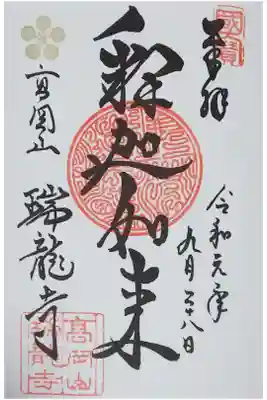 奉拝
國寶
令和元年
九月二十八日
釈迦如来
高岡山
瑞龍寺
高岡山
瑞龍寺